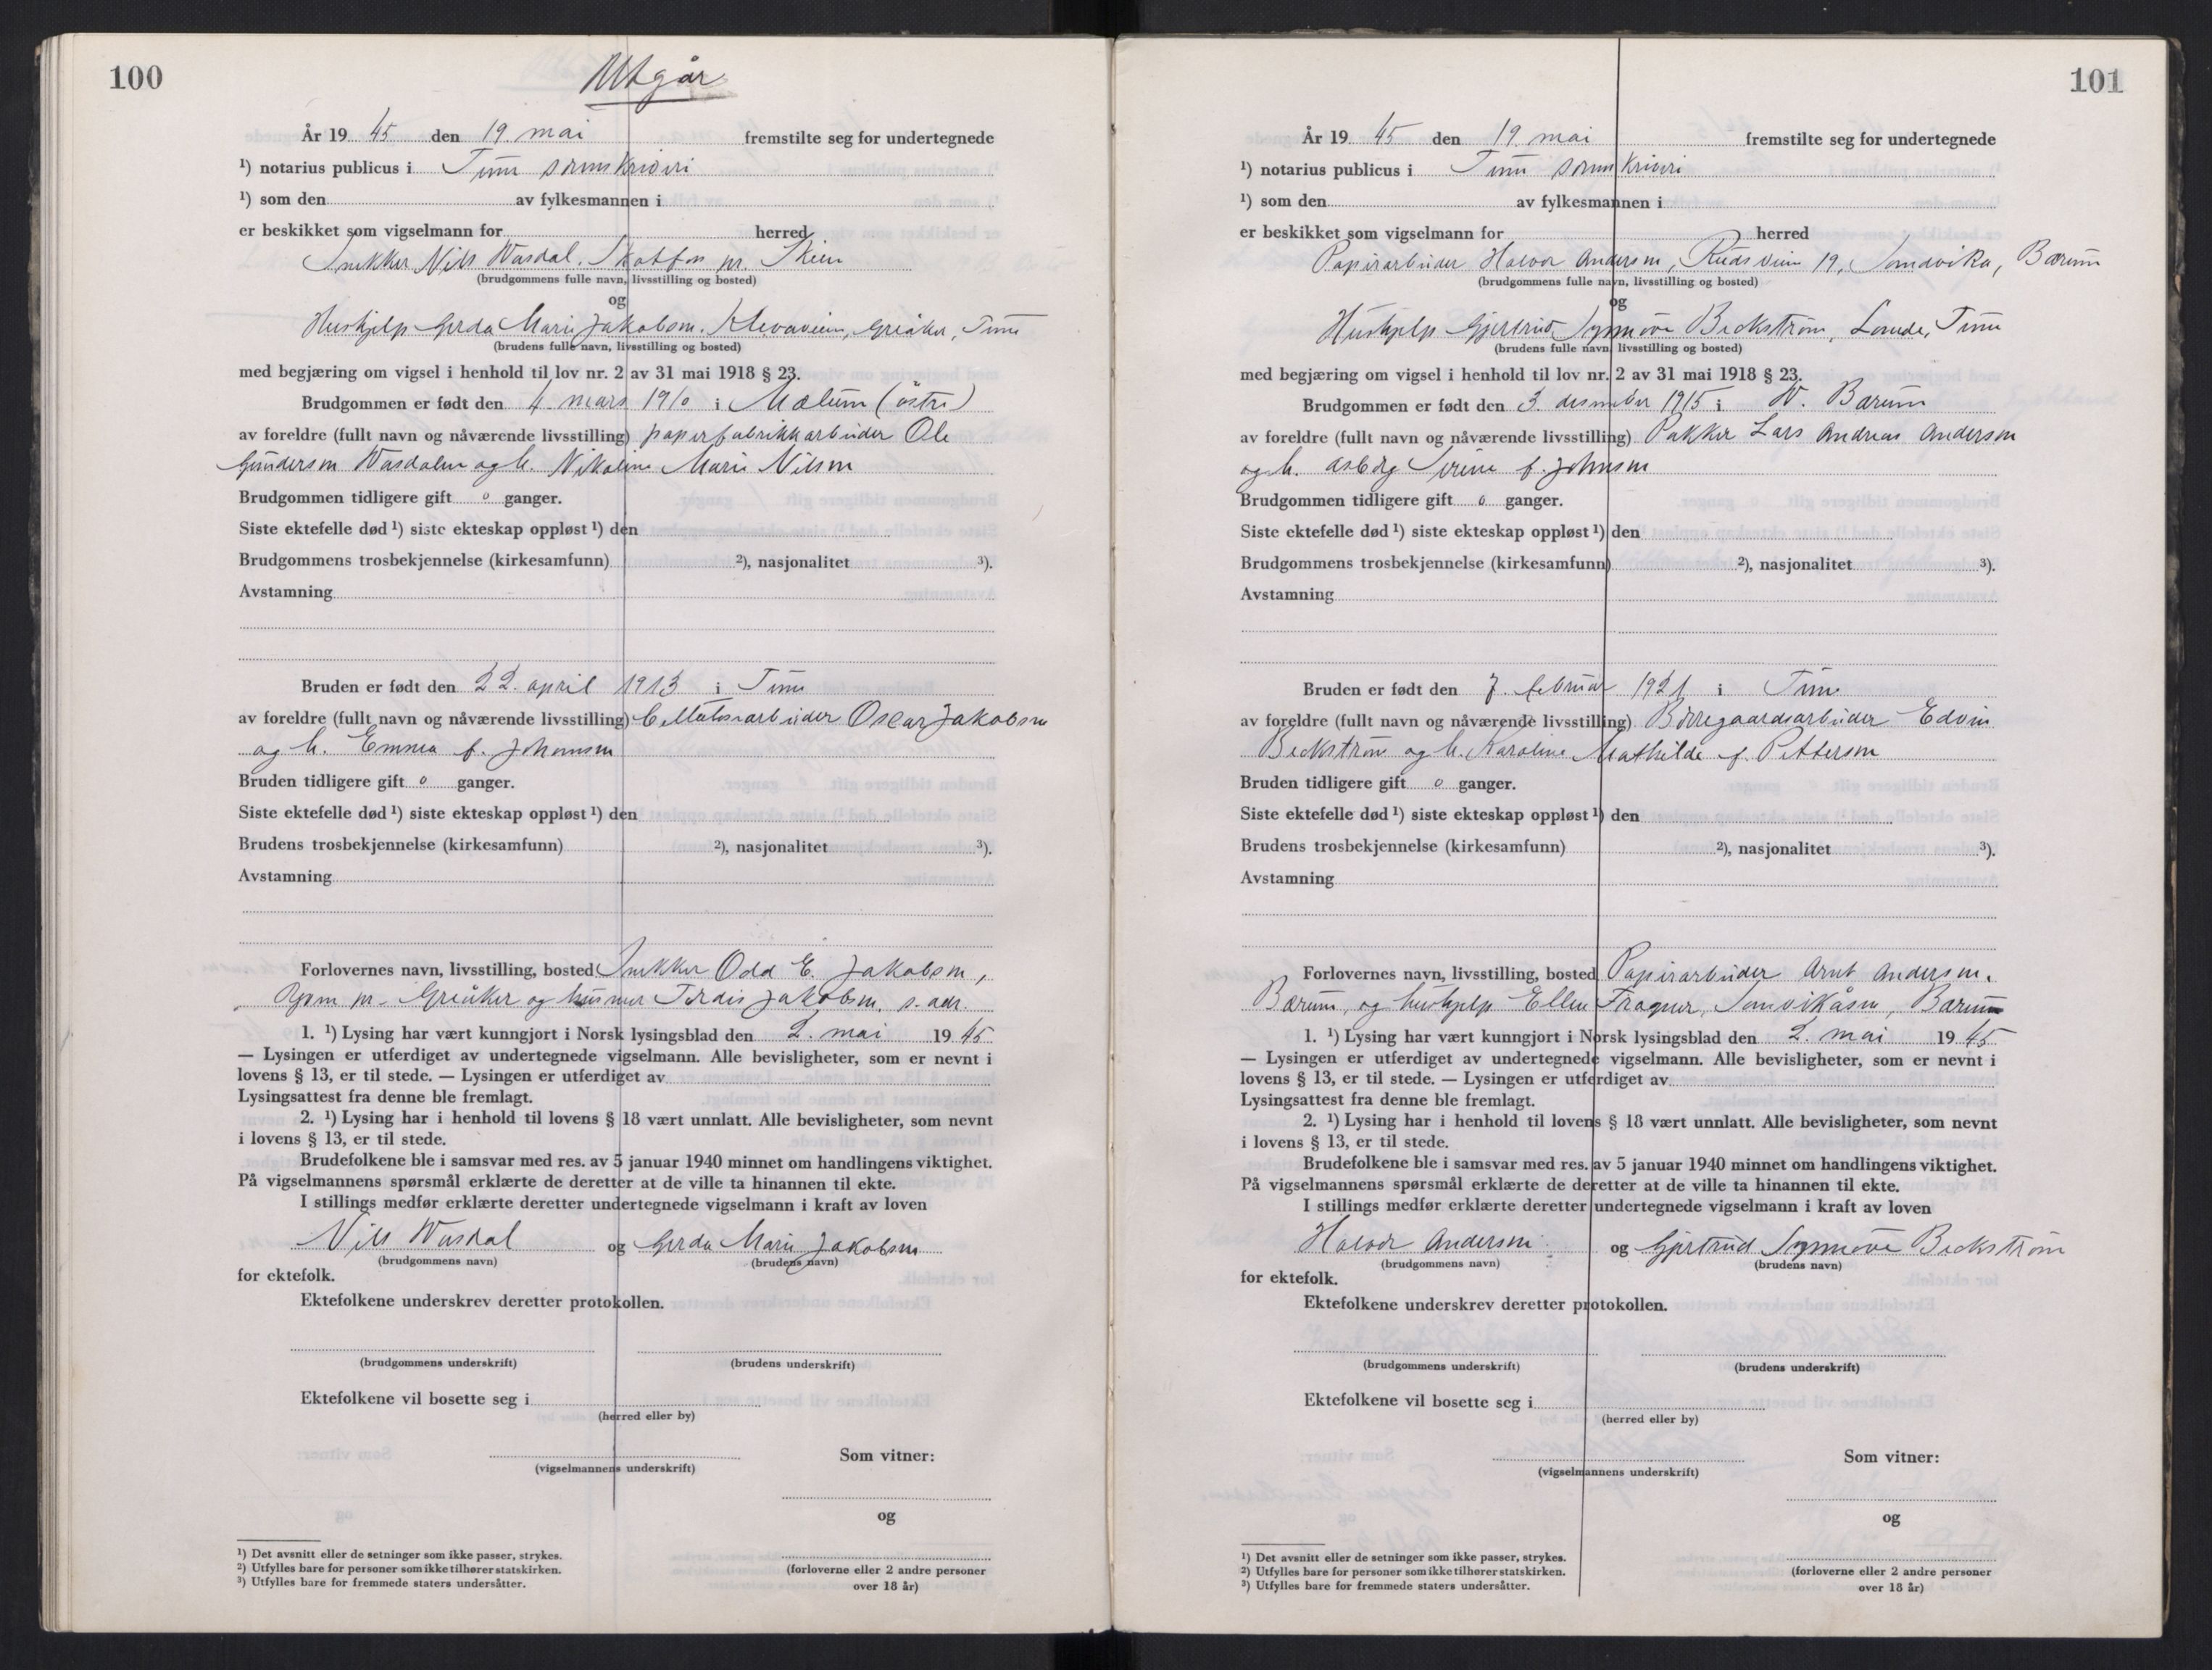 100
Utgår
År 19 45 den 19 mai fremstilte seg for undertegnede
¹) notarius publicus i Tune sorenskriveri
¹) som den av fylkesmannen i
er beskikket som vigselmann for herred
Snekker Nils Wasdal. Skotfoss pr. Skien
(brudgommens fulle navn, livsstilling og bosted)
og
Hushjelp Gerda Marie Jakobsen. Klevaveien, Greåker, Tune
(brudens fulle navn, livsstilling og bosted)
med begjæring om vigsel i henhold til lov nr. 2 av 31 mai 1918 § 23.
Brudgommen er født den 4. mars 1910 i Mælum (østre)
av foreldre (fullt navn og nåværende livsstilling) papirfabrikkarbeider Ole
Gundersen Wasdalen og h. Nikoline Marie Nilsen
Brudgommen tidligere gift 0 ganger.
Siste ektefelle død ¹) siste ekteskap oppløst ¹) den
Brudgommens trosbekjennelse (kirkesamfunn) ²), nasjonalitet ³).
Avstamning
Bruden er født den 22. april 1913 i Tune
av foreldre (fullt navn og nåværende livsstilling) Cellulosearbeider Oscar Jakobsen
og h. Emma f. Johansen
Bruden tidligere gift 0 ganger.
Siste ektefelle død ¹) siste ekteskap oppløst ¹) den
Brudens trosbekjennelse (kirkesamfunn) ²), nasjonalitet ³).
Avstamning
Forlovernes navn, livsstilling, bosted Snekker Odd E. Jakobsen,
pr. Greåker og husmor Jakobsen, s. adr.
1. ¹) Lysing har vært kunngjort i Norsk lysingsblad den 2. mai 19 45
— Lysingen er utferdiget av undertegnede vigselmann. Alle bevisligheter, som er nevnt i
lovens § 13, er til stede. — Lysingen er utferdiget av
Lysingsattest fra denne ble fremlagt.
2. ¹) Lysing har i henhold til lovens § 18 vært unnlatt. Alle bevisligheter, som nevnt
i lovens § 13, er til stede.
Brudefolkene ble i samsvar med res. av 5 januar 1940 minnet om handlingens viktighet.
På vigselmannens spørsmål erklærte de deretter at de ville ta hinannen til ekte.
I stillings medfør erklærte deretter undertegnede vigselmann i kraft av loven
Nils Wasdal og Gerda Marie Jakobsen
(brudgommens navn) (brudens navn)
for ektefolk.
Ektefolkene underskrev deretter protokollen.
(brudgommens underskrift) (brudens underskrift)
Ektefolkene vil bosette seg i
(herred eller by)
Som vitner:
(vigselmannens underskrift)
og
¹) Det avsnitt eller de setninger som ikke passer, strykes.
²) Utfylles bare for personer som ikke tilhører statskirken.
³) Utfylles bare for fremmede staters undersåtter.
(forloverne eller 2 andre personer
over 18 år)
101
År 19 45 den 19. mai fremstilte seg for undertegnede
¹) notarius publicus i Tune sorenskriveri
¹) som den av fylkesmannen i
er beskikket som vigselmann for herred
Papirarbeider Halvor Andersen, Rudsveien 19, Sandvika, Bærum
(brudgommens fulle navn, livsstilling og bosted)
og
Hushjelp Gjertrud Synnøve Beckstrøm, Lande, Tune
(brudens fulle navn, livsstilling og bosted)
med begjæring om vigsel i henhold til lov nr. 2 av 31 mai 1918 § 23.
Brudgommen er født den 3. desember 1915 i V. Bærum
av foreldre (fullt navn og nåværende livsstilling) Pakker Lars Andreas Andersen
og h. Asbørg Sirene f. Johnsen
Brudgommen tidligere gift 0 ganger.
Siste ektefelle død ¹) siste ekteskap oppløst ¹) den
Brudgommens trosbekjennelse (kirkesamfunn) ²), nasjonalitet ³).
Avstamning
Bruden er født den 7. februar 1921 i Tune
av foreldre (fullt navn og nåværende livsstilling) Borregaardsarbeider Edvin
Beckstrøm og h. Karoline Mathilde f. Pettersen
Bruden tidligere gift 0 ganger.
Siste ektefelle død ¹) siste ekteskap oppløst ¹) den
Brudens trosbekjennelse (kirkesamfunn) ²), nasjonalitet ³).
Avstamning
Forlovernes navn, livsstilling, bosted Papirarbeider Arnt Andersen,
Bærum, og hushjelp Ellen Fragner, Sandvikåsen, Bærum
1. ¹) Lysing har vært kunngjort i Norsk lysingsblad den 2. mai 19 45
— Lysingen er utferdiget av undertegnede vigselmann. Alle bevisligheter, som er nevnt i
lovens § 13, er til stede. — Lysingen er utferdiget av
Lysingsattest fra denne ble fremlagt.
2. ¹) Lysing har i henhold til lovens § 18 vært unnlatt. Alle bevisligheter, som nevnt
i lovens § 13, er til stede.
Brudefolkene ble i samsvar med res. av 5 januar 1940 minnet om handlingens viktighet.
På vigselmannens spørsmål erklærte de deretter at de ville ta hinannen til ekte.
I stillings medfør erklærte deretter undertegnede vigselmann i kraft av loven
Halvor Andersen og Gjertrud Synnøve Beckstrøm
(brudgommens navn) (brudens navn)
for ektefolk.
Ektefolkene underskrev deretter protokollen.
(brudgommens underskrift) (brudens underskrift)
Ektefolkene vil bosette seg i
(herred eller by)
Som vitner:
(vigselmannens underskrift)
og
¹) Det avsnitt eller de setninger som ikke passer, strykes.
²) Utfylles bare for personer som ikke tilhører statskirken.
³) Utfylles bare for fremmede staters undersåtter.
(forloverne eller 2 andre personer
over 18 år)